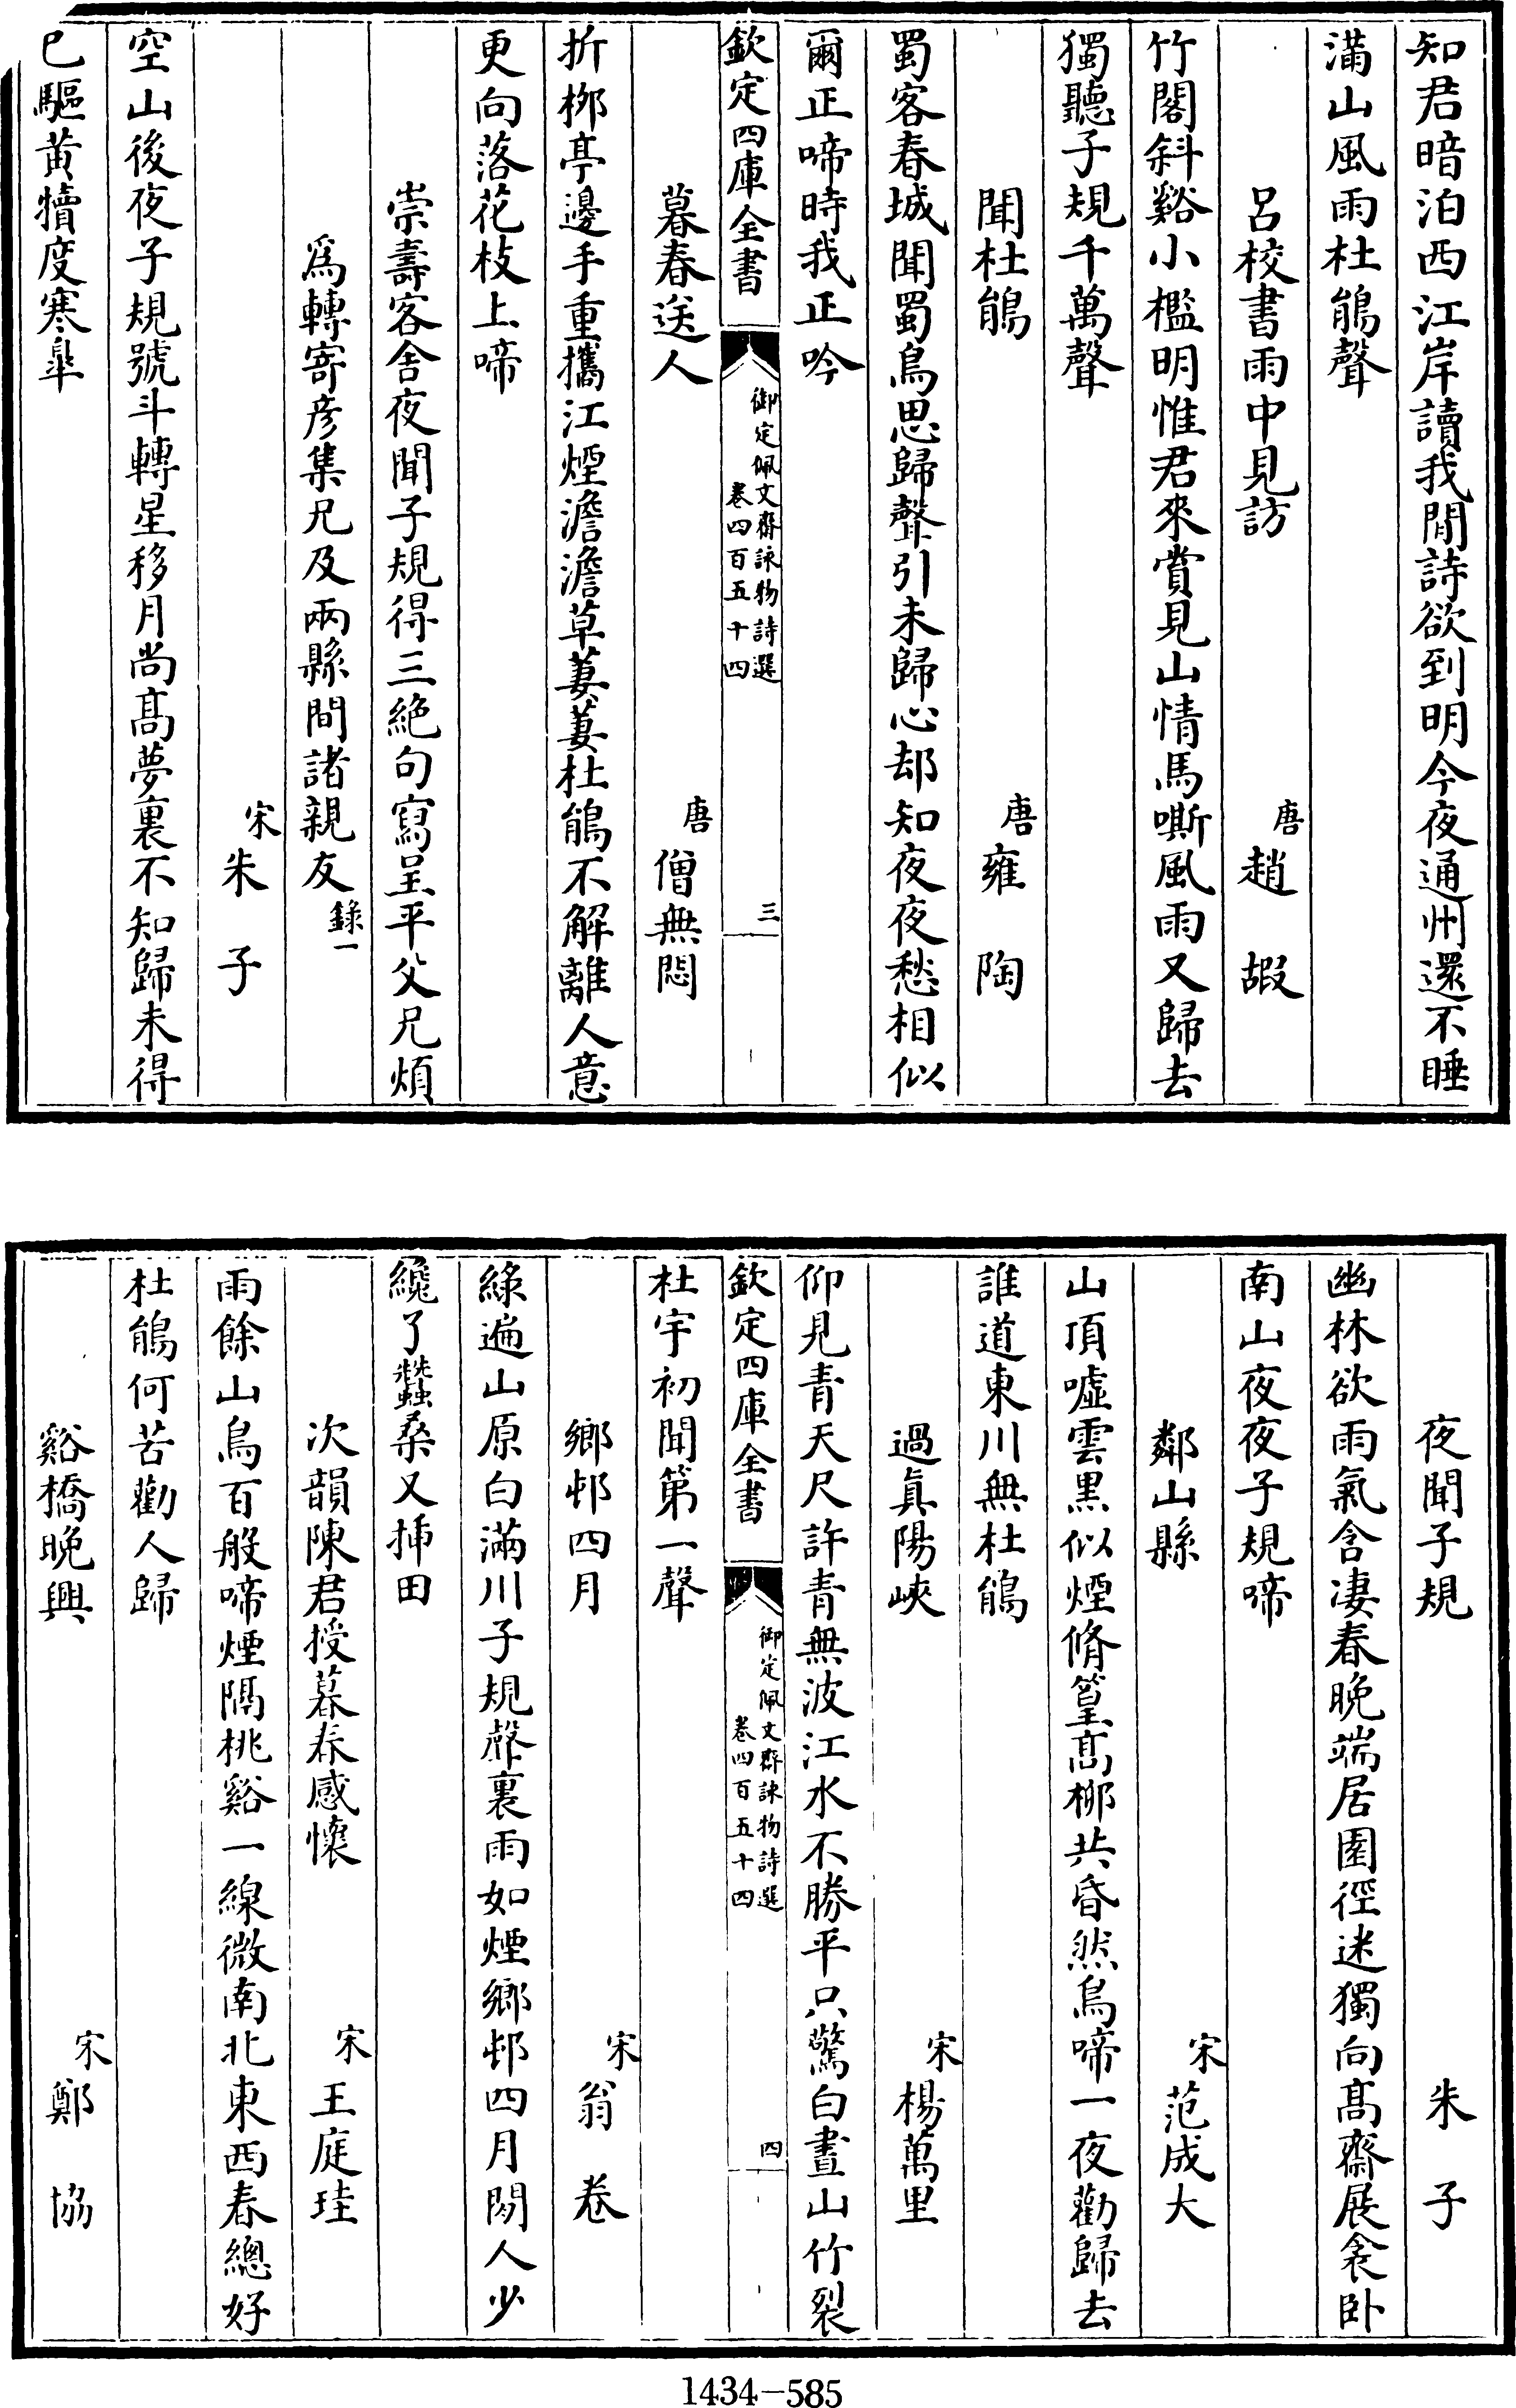 知君暗泊西江岸讀我閒詩欲到明今夜通州還不睡
滿山風雨杜鵑聲
呂校書雨中見訪
唐趙嘏
竹閣斜谿小檻明惟君來賞見山情馬嘶風雨又歸去
獨聽子規千萬聲
聞杜鵑
唐雍陶
蜀客春城聞蜀鳥思歸聲引未歸心却知夜夜愁相似
爾正啼時我正吟
欽定四庫全書
御定佩文齋詠物詩選
卷四百五十四
三
暮春送人
唐僧無悶
折桞亭邊手重攜江煙澹澹草萋萋杜鵑不解離人意
更向落花枝上啼
崇壽客舍夜聞子規得三絶句寫呈平父兄煩
為轉寄彥集兄及兩縣間諸親友錄一
宋朱子
空山後夜子規號斗轉星移月尚髙夢裏不知歸未得
已驅黃犢度寒臯
夜聞子規
朱子
幽林欲雨氣含凄春晚端居園徑迷獨向髙齋展衾卧
南山夜夜子規啼
鄰山縣
宋范成大
山頂噓雲黒似煙脩篁髙桞共昏然鳥啼一夜勸歸去
誰道東川無杜鵑
過真陽峽
宋楊萬里
仰見青天尺許青無波江水不勝平只驚白晝山竹裂
欽定四庫全書
御定佩文齋詠物詩選
卷四百五十四
四
杜宇初聞第一聲
鄉邨四月
宋翁卷
綠遍山原白滿川子規聲裏雨如煙鄉邨四月閒人少
纔了蠶桑又揷田
次韻陳君授暮春感懷
宋王庭珪
雨餘山鳥百般啼煙隔桃谿一線微南北東西春總好
杜鵑何苦勸人歸
谿橋晚興
宋鄭協
1434-585